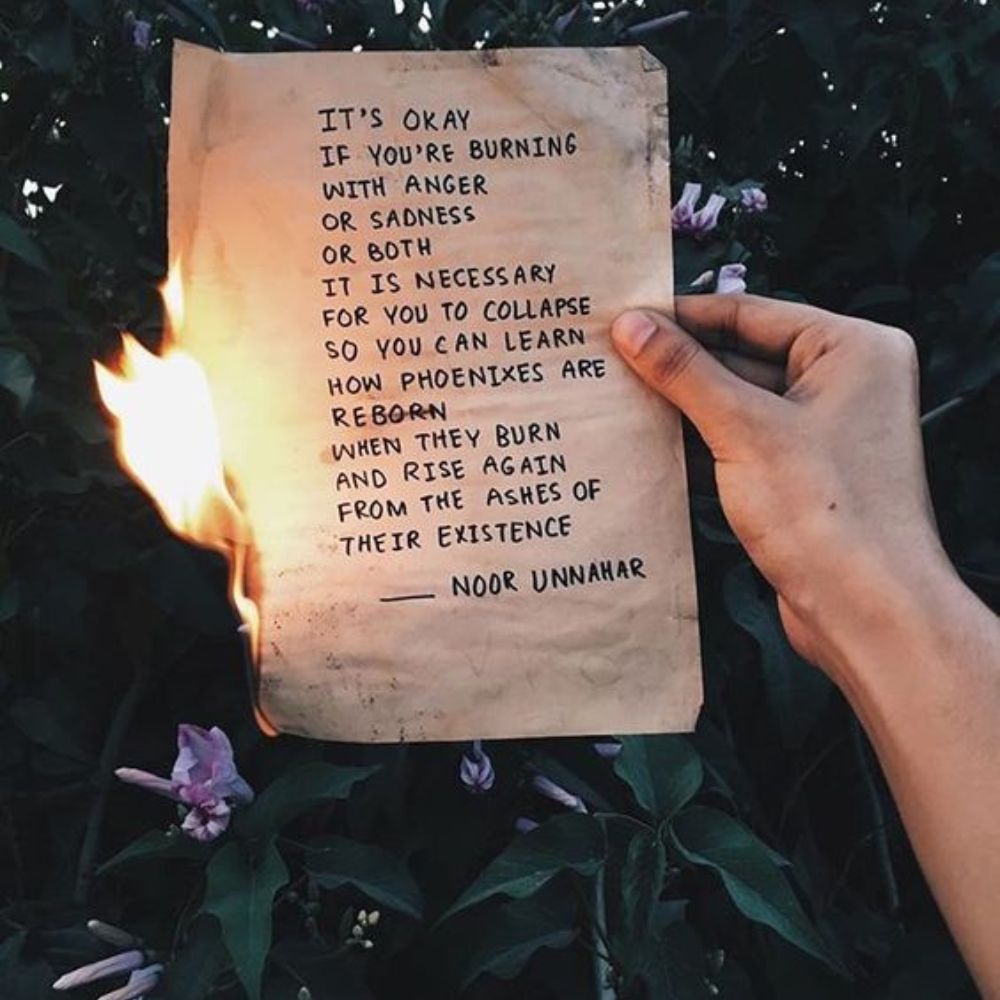 IT'S OKAY
IF YOU'RE BURNING
WITH ANGER
OR SADNESS
OR BOTH
IT IS NECESSARY
FOR YOU TO COLLAPSE
SO YOU CAN LEARN
HOW PHOENIXES ARE
REBORN
WHEN THEY BURN
AND RISE AGAIN
FROM THE ASHES OF
THEIR EXISTENCE
___ NOOR UNNAHAR